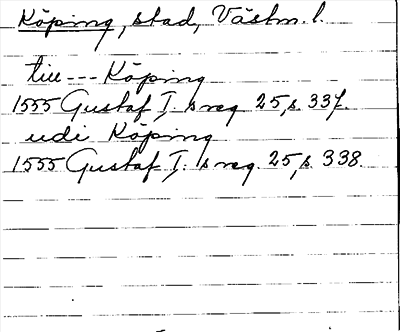 Köping, stad, Västm. l.
till --- Köping
1555 Gustaf I:s reg. 25, s. 337.
udi Köping
1555 Gustaf I:s reg. 25, s. 338.